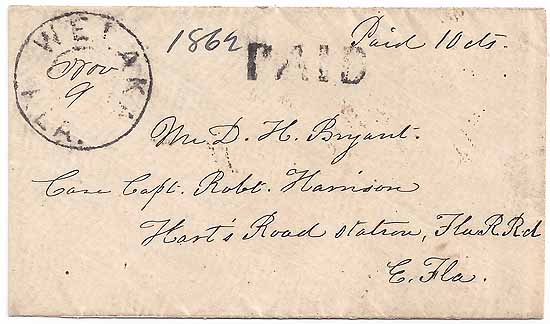 WELAKA
Nov
9
FLA.
1862
PAID
Paid 10 cts.
Mr. D. H. Bryant.
Care Capt. Robt. Harrison
Hart's Road Station, Fla R Rd
E. Fla.